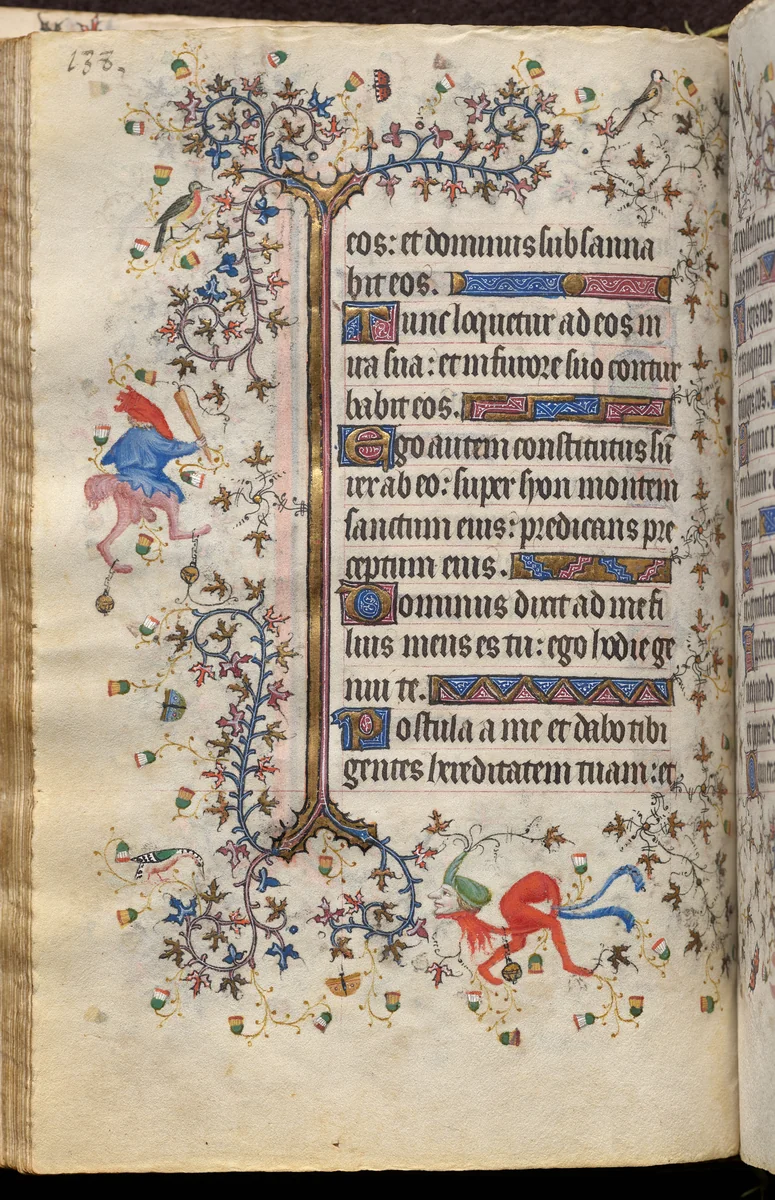 133.
eos: et dominus subsanna
bit eos.
Tunc loquetur ad eos in
ira sua: et in furore suo contur
babit eos.
Ego autem constitutus sū
rex ab eo: super syon montem
sanctum eius: predicans pre
ceptum eius.
Dominus dixit ad me fi
lius meus es tu: ego hodie ge
nui te.
Postula a me et dabo tibi
gentes hereditatem tuam: et